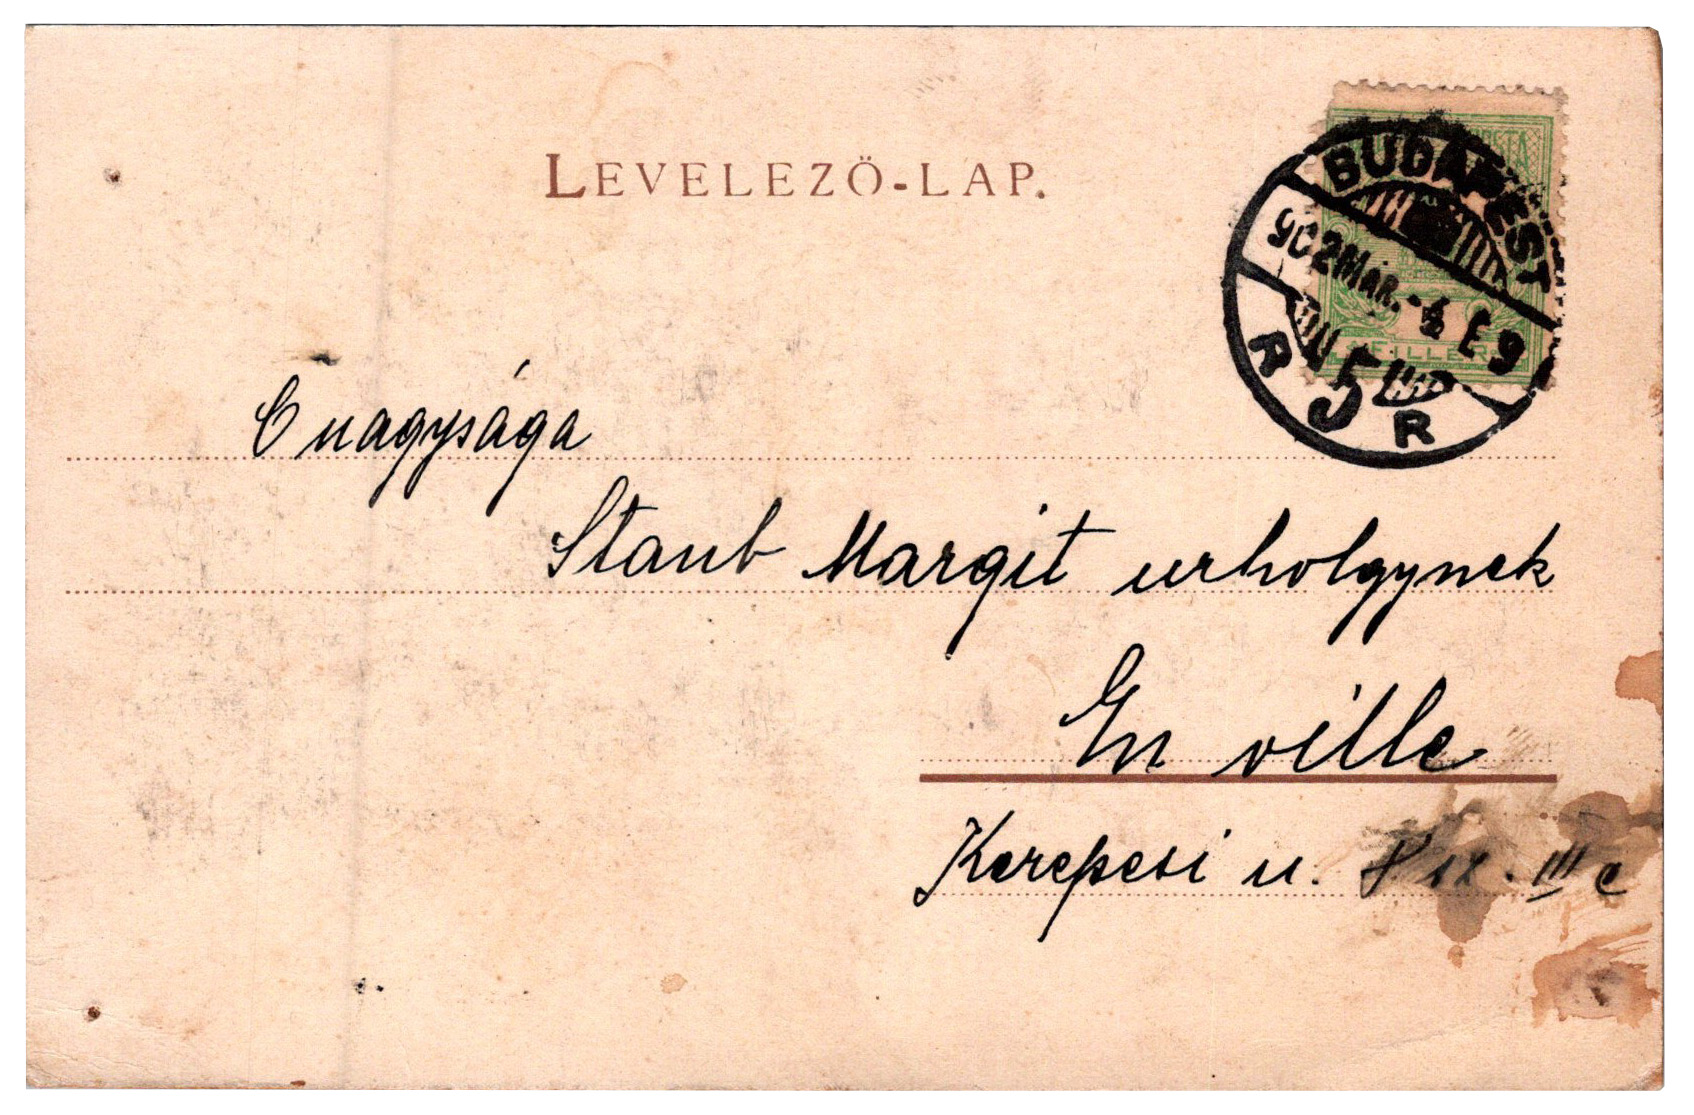 LEVELEZÖ-LAP.
BUDAPEST
902 MÁR. E 9
FILLER
R 5 R
O nagysága
Staub Margit urholgynek
En ville
Kerepesi u. III e